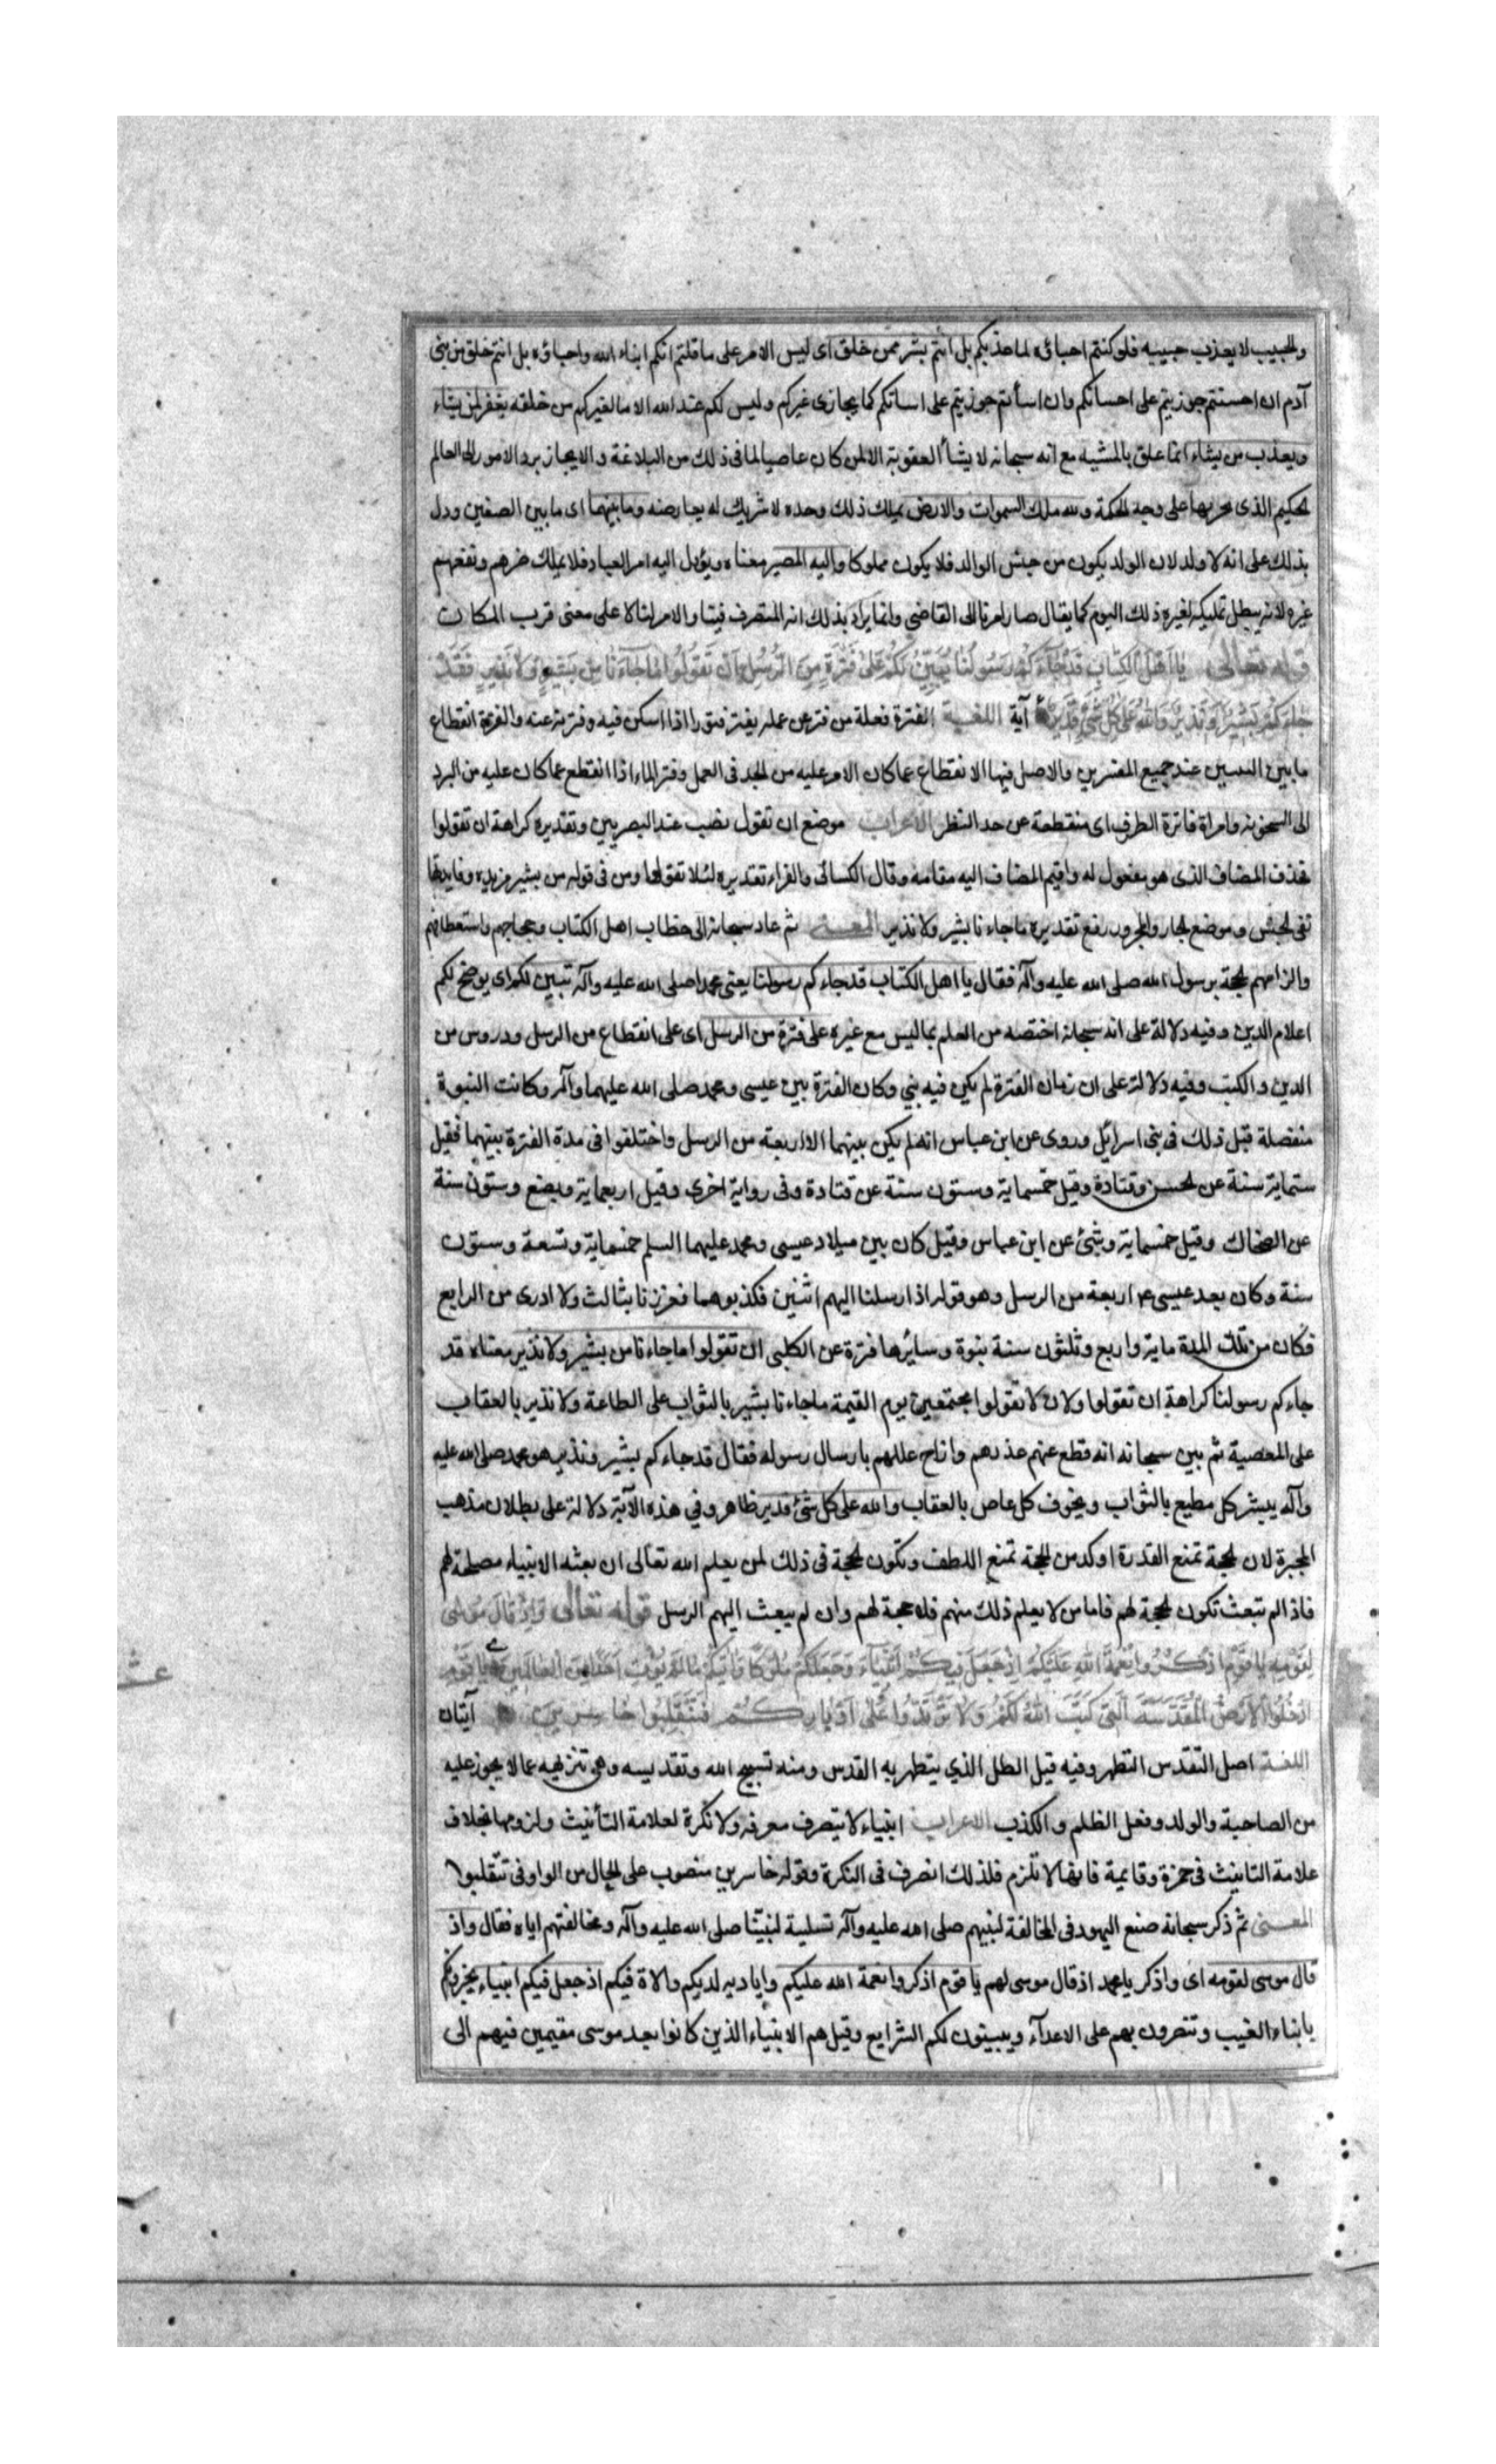 والحبيب لا يعذب حبيبه فلو كنتم احباؤه لما عذبكم بل انتم بشر ممن خلق اى ليس الامر على ما قلتم انكم ابناء الله واحباؤه بل انتم خلق من بنى
آدم ان احسنتم جوزيتم على احسانكم وان اسأتم جوزيتم على اساتكم كما يجازى غيركم وليس لكم عند الله الا ما لغيركم من خلقه يغفر لمن يشاء
ويعذب من يشاء انما علق بالمشيه مع انه سبحانه لا يشأ العقوبة الا لمن كان عاصيا لما فى ذلك من البلاغة والايجاز برد الامور الى العالم
الحكيم الذى يجريها على وجه الحكمة ولله ملك السموات والارض يملك ذلك وحده لا شريك له يعارضه وما بينهما اى ما بين الصنفين ودل
بذلك على انه لا ولد لان الولد يكون من جنس الوالد فلا يكون مملوكا واليه المصير معناه ويؤل اليه امر العباد فلا يملك ضرهم ونفعهم
غيره لانه يبطل تمليكه لغيره ذلك اليوم كما يقال صار امرنا الى القاضى وانما يراد بذلك انه المتصرف فينا والامر لنا لا على معنى قرب المكان
قوله تعالى يا اهل الكتاب قد جاءكم رسولنا يبين لكم على فترة من الرسل ان تقولوا ما جاءنا من بشير ولا نذير فقد
جاءكم بشير ونذير والله على كل شئ قدير آية اللغة الفترة فعلة من فتر عن عمله يفتر فتورا اذا اسكن فيه وفتر ته عنه والفترة انقطاع
ما بين النبيين عند جميع المفسرين والاصل فيها الانقطاع عما كان الامر عليه من الجد فى العمل وفتر الماء اذا انقطع عما كان عليه من البرد
الى السخونة وامراة فاترة الطرف اى منقطعة عن حد النظر الاعراب موضع ان تقول نصب عند البصريين وتقديره كراهة ان تقولوا
فحذف المضاف الذى هو مفعول له واقيم المضاف اليه مقامه وقال الكسائى والفراء تقديره لئلا تقولوا ومن فى قوله من بشير مزيده وفايدتها
نفى الجنس وموضع الجار والمجرور رفع تقديره ما جاءنا بشير ولا نذير المعنى ثم عاد سبحانه الى خطاب اهل الكتاب وحجاجهم واستعطافهم
والزامهم الحجة برسول الله صلى الله عليه وآله فقال يا اهل الكتاب قد جاءكم رسولنا يعنى محمدا صلى الله عليه وآله تبين لكم اى يوضح لكم
اعلام الدين وفيه دلالة على انه سبحانه اختصه من العلم بما ليس مع غيره على فترة من الرسل اى على انقطاع من الرسل ودروس من
الدين والكتب وفيه دلالة على ان زمان الفترة لم يكن فيه نبى وكان الفترة بين عيسى ومحمد صلى الله عليهما وآله وكانت النبوة
متصلة قبل ذلك فى بنى اسرائيل وروى عن ابن عباس انه لم يكن بينهما الا اربعة من الرسل واختلفوا فى مدة الفترة بينهما فقيل
ستماية سنة عن الحسن وقتادة وقيل خمسماية وستون سنة عن قتادة وفى رواية اخرى وقيل اربعماية وبضع وستون سنة
عن الضحاك وقيل خمسماية وشئ عن ابن عباس وقيل كان بين ميلاد عيسى ومحمد عليهما السلم خمسماية وتسعة وستون
سنة وكان بعد عيسى ع اربعة من الرسل وهو قوله اذ ارسلنا اليهم اثنين فكذبوهما فعززنا بثالث ولا ادرى من الرابع
فكان من تلك المدة ماية واربع وثلثون سنة نبوة وسائرها فترة عن الكلبى ان تقولوا ما جاءنا من بشير ولا نذير معناه قد
جاءكم رسولنا كراهة ان تقولوا ولان لا تقولوا مجتمعين يوم القيمة ما جاءنا بشير بالثواب على الطاعة ولا نذير بالعقاب
على المعصية ثم بين سبحانه انه قطع عنهم عذرهم وازاح عللهم بارسال رسوله فقال قد جاءكم بشير ونذير هو محمد صلى الله عليه
وآله يبشر كل مطيع بالثواب ويخوف كل عاص بالعقاب والله على كل شئ قدير ظاهر وفي هذه الآية دلالة على بطلان مذهب
المجبرة لان الحجة تمنع القدرة اوكد من الحجة تمنع اللطف وتكون الحجة فى ذلك لمن يعلم الله تعالى ان بعثه الانبياء مصلحة لهم
فاذا لم تبعث تكون الحجة لهم فاما من لا يعلم ذلك منهم فلا حجة لهم وان لم يبعث اليهم الرسل قوله تعالى واذ قال موسى
لقومه يا قوم اذكروا نعمة الله عليكم اذ جعل فيكم انبياء وجعلكم ملوكا وآتيكم ما لم يؤت احدا من العالمين يا قوم
ادخلوا الارض المقدسة التى كتب الله لكم ولا ترتدوا على ادباركم فتنقلبوا خاسرين آيتان
اللغة اصل التقدس التطهر وفيه قيل السطل الذي يتطهر به القدس ومنه تسبيح الله وتقديسه وهى تنزيهه عما لا يجوز عليه
من الصاحبة والولد وفعل الظلم والكذب الاعراب انبياء لا يتصرف معرفه ولا نكرة لعلامة التأنيث ولزومها بخلاف
علامة التانيث فى حمزة وقايمة فانها لا تلزم فلذلك انصرف فى النكرة وقوله خاسرين منصوب على الحال من الواو فى تنقلبوا
المعنى ثم ذكر سبحانه صنع اليهود فى المخالفة لنبيهم صلى الله عليه وآله تسلية لنبيّنا صلى الله عليه وآله ومخالفتهم اياه فقال واذ
قال موسى لقومه اى واذكر يا محمد اذ قال موسى لهم يا قوم اذكروا نعمة الله عليكم واياديه لديكم وآلاه فيكم اذ جعل فيكم انبياء يخبرونكم
بانباء الغيب وتنصرون بهم على الاعدآء ويبينون لكم الشرايع وقيل هم الانبياء الذين كانوا بعد موسى مقيمين فيهم الى